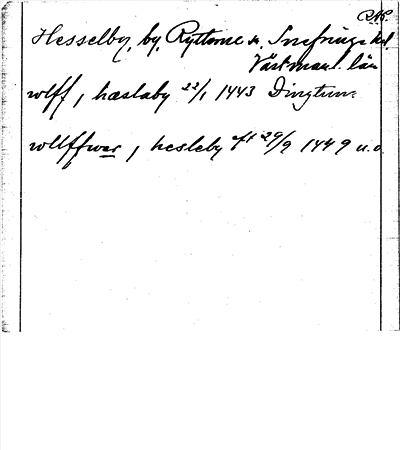 Hesselby, by, Ryttorne sn. Snefringe hd.
Västmanl. län
wlff, j hæslaby 22/1 1443 Dingtuna
wllffwar, j hesleby 29/9 1449 u.o.